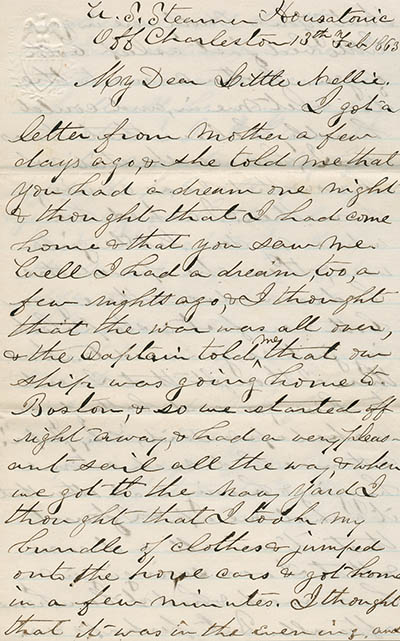 U.S. Steamer Housatonic
Off Charleston 13th Feb 1863
My Dear Little Nellie.
I got a
letter from Mother a few
days ago, & she told me that
you had a dream one night
& thought that I had come
home & that you saw me.
Well I had a dream too, a
few nights ago, & I thought
that the war was all over,
& the Captain told me, that our
ship was going home to
Boston, & so we started off
right away, & had a very pleas-
ant sail all the way, & when
we got to the Navy Yard I
thought that I took my
bundle of clothes & jumped
onto the horse cars & got home
in a few minutes. I thought
that it was in the evening, and